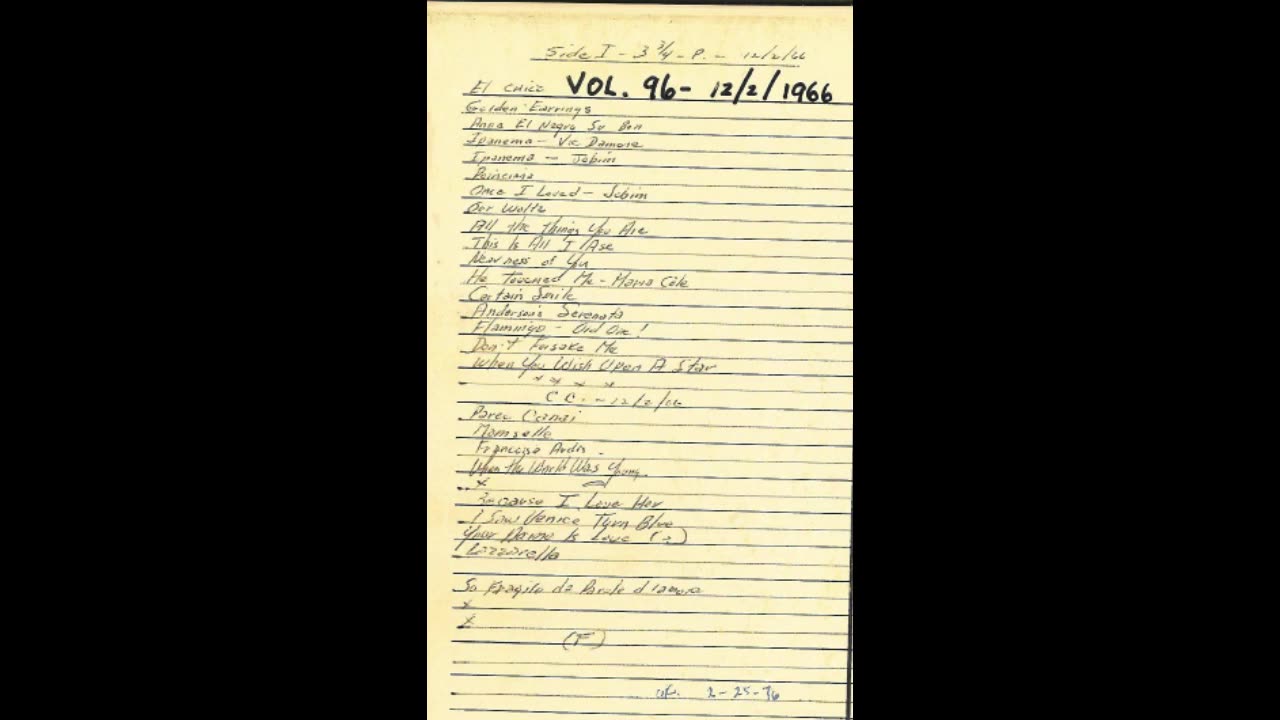 Side I - 3 3/4 - P. - 12/2/66
El Chico VOL. 96- 12/2/1966
Golden Earrings
Anna El Negro Su Bon
Ipanema - Vic Damone
Ipanema - Jobim
Once I Loved - Jobim
Our Waltz
All the Things You Are
This Is All I Ask
Nearness of You
He Touched Me - Maria Cole
Certain Smile
Anderson's Serenata
Flamingo - Old One!
Don't Forsake Me
When You Wish Upon A Star
x x x x
C C. - 12/2/66
Mamselle
When the World Was Young
x
Because I Love Her
I Saw Venice Turn Blue
Your Name Is Love (?)
Lazzarella
x
x
(F)
ok. 2-25-76